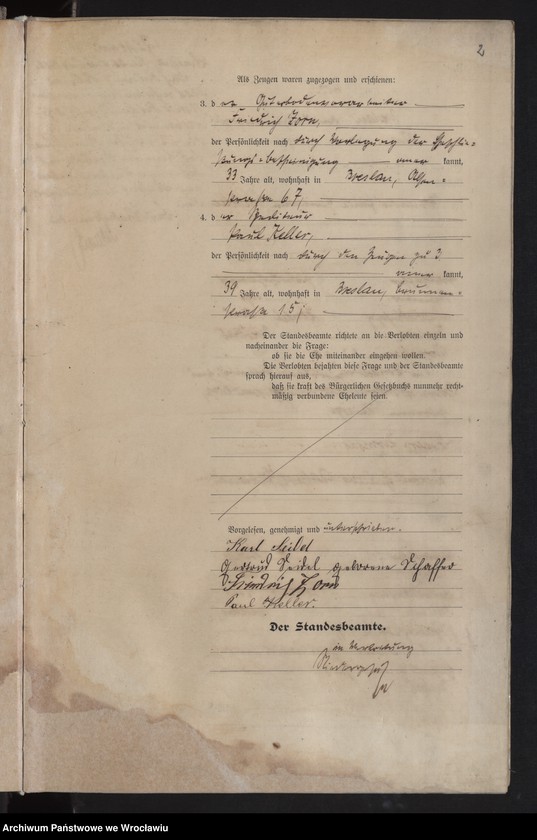 2
Als Zeugen waren zugezogen und erschienen:
3. der Güterbodenvorarbeiter
Friedrich Zorn,
der Persönlichkeit nach durch Vorlegung der Eheschlie-
ßungs-bescheinigung kannt,
33 Jahre alt, wohnhaft in Breslau,
straße 67,
4. der Spediteur
Paul Keller,
der Persönlichkeit nach durch den Zeugen zu 3
kannt,
39 Jahre alt, wohnhaft in Breslau, Brunnen-
straße 15;
Der Standesbeamte richtete an die Verlobten einzeln und
nacheinander die Frage:
ob sie die Ehe miteinander eingehen wollen.
Die Verlobten bejahten diese Frage und der Standesbeamte
sprach hierauf aus,
daß sie kraft des Bürgerlichen Gesetzbuchs nunmehr recht-
mäßig verbundene Eheleute seien.
Vorgelesen, genehmigt und unterschrieben.
Karl Seidel
Gertrud Seidel geborene Schaffer
Friedrich Zorn
Paul Keller.
Der Standesbeamte.
in Vertretung
Archiwum Państwowe we Wrocławiu